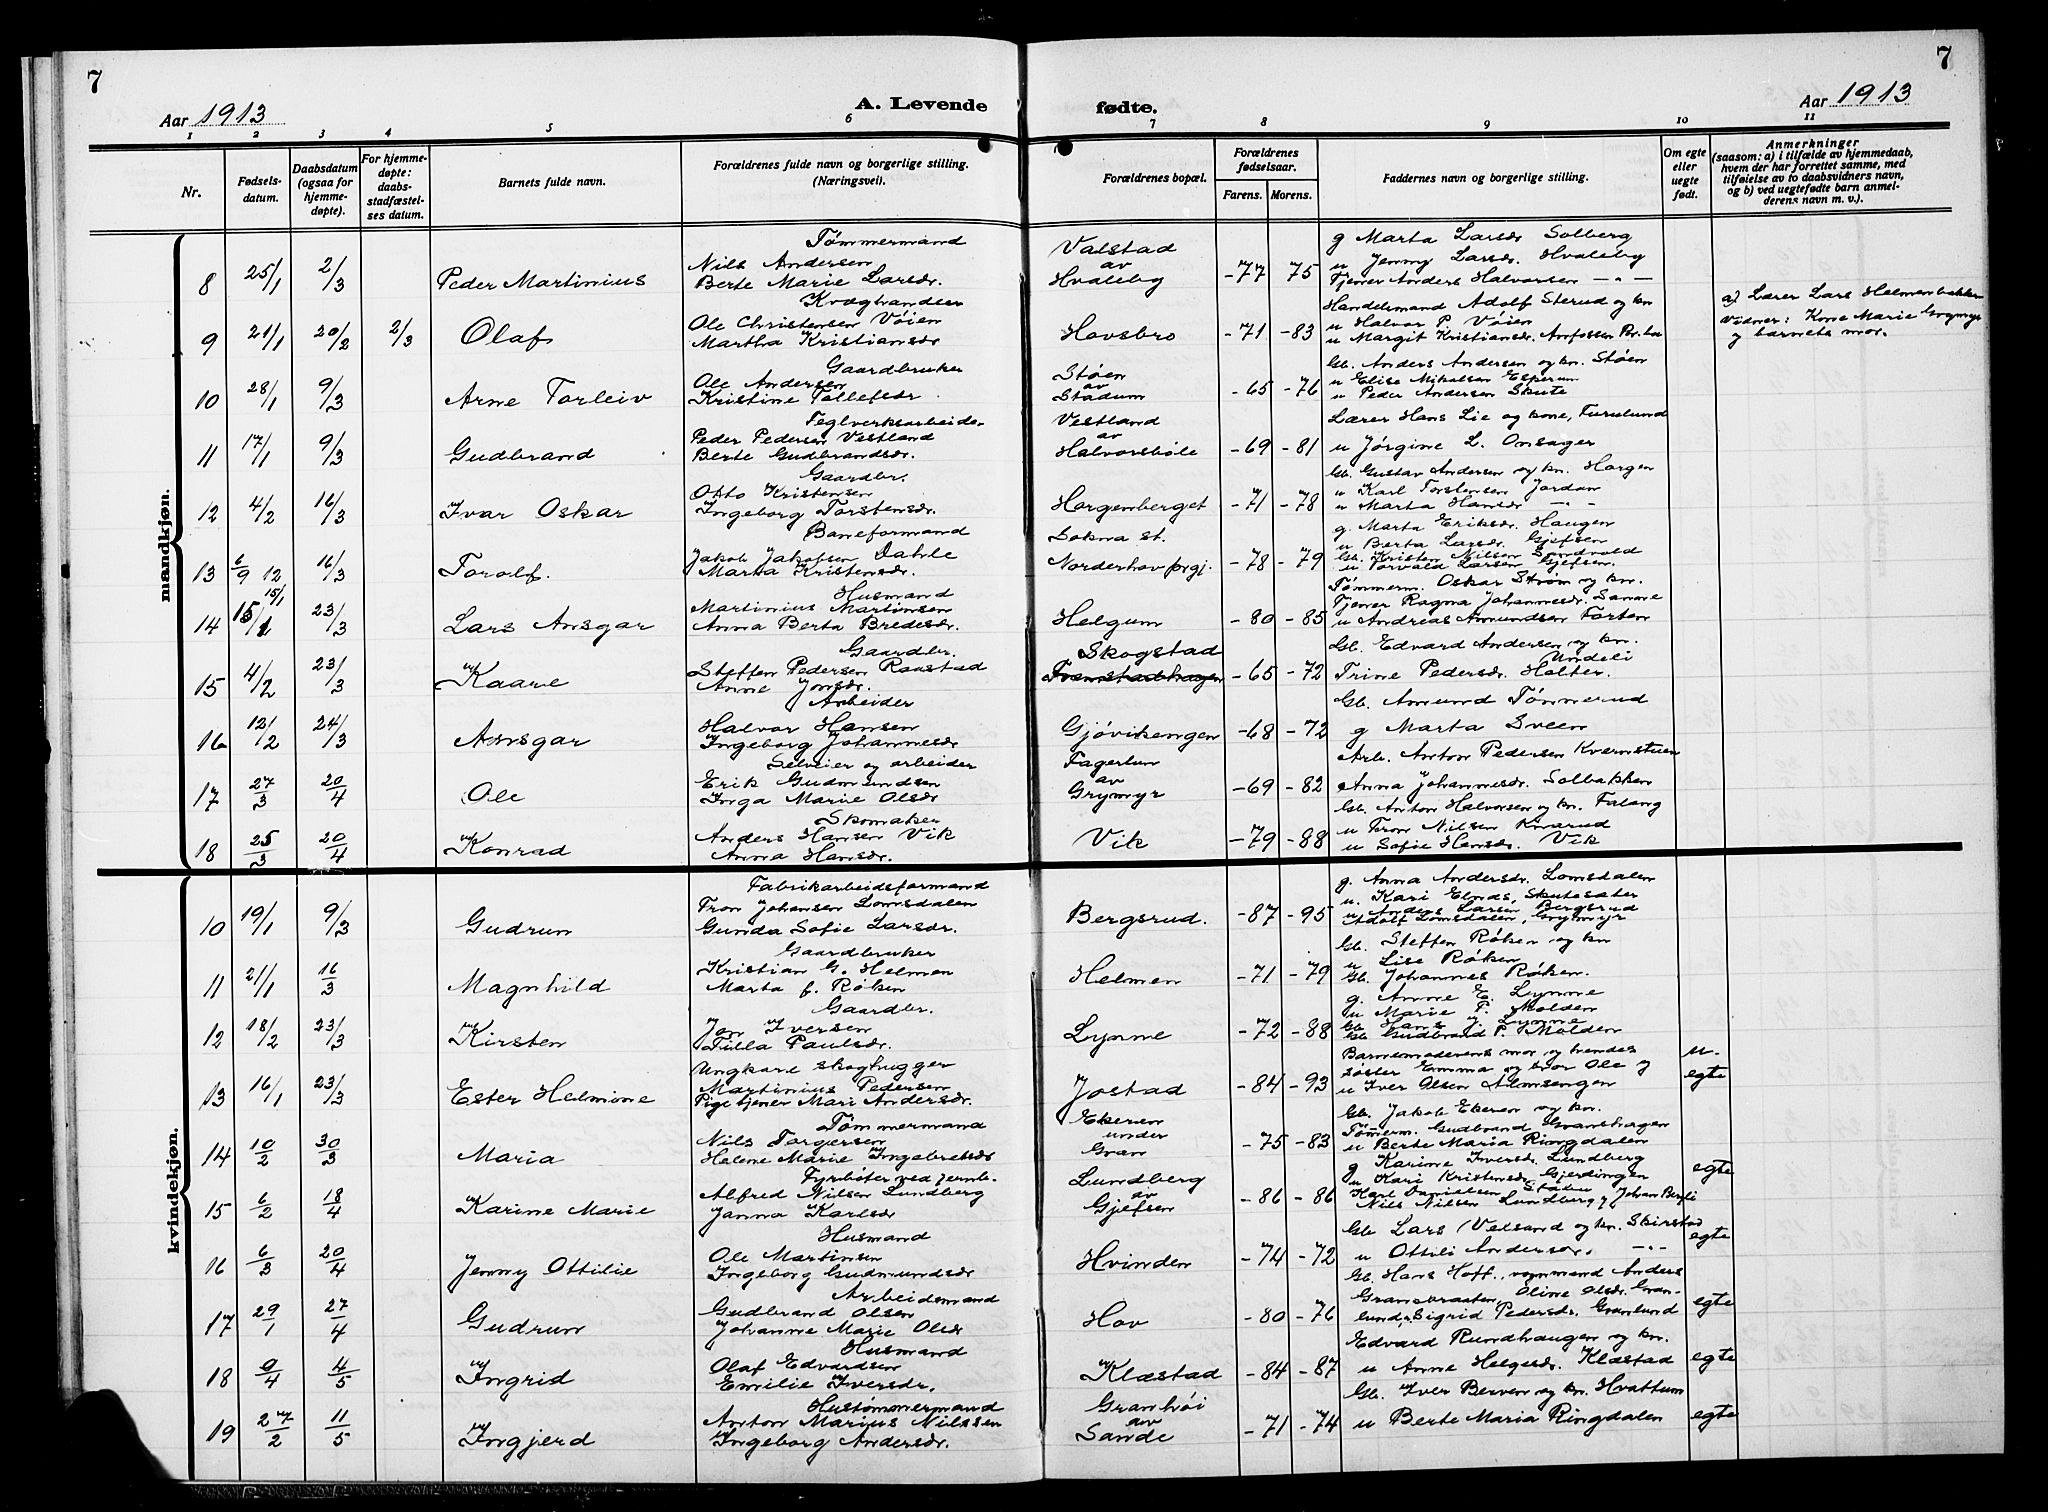 7
7
Aar 1913
A. Levende
fødte.
Aar 1913
1 2 3 4 5 6 7 8 9 10 11
Nr.
Fødsels-
datum.
Daabsdatum
(ogsaa for
hjemme-
døpte).
For hjemme-
døpte:
daabs-
stadfæstel-
ses datum.
Barnets fulde navn.
Forældrenes fulde navn og borgerlige stilling.
(Næringsvei).
Forældrenes bopæl.
Forældrenes
fødselsaar.
Farens. Morens.
Faddernes navn og borgerlige stilling.
Om egte
eller
uegte
født.
Anmerkninger
(saasom: a) i tilfælde av hjemmedaab,
hvem der har forrettet samme, med
tilføielse av to daabsvidners navn,
og b) ved uegtefødte barn anmel-
derens navn m. v.).
mandkjøn.
8 25/1 2/3 Peder Martinius
Tømmermand
Nils Andersen
Berte Marie Larsdr.
Valstad
av
Hvaleby
-77 75
g Marta Larsdr Solberg
u Jenny Larsdr. Hvaleby
Tjener Anders Halvorsen -"-
9 21/1 20/2 2/3 Olaf
Kvæghandler
Ole Christensen Vøien
Martha Kristiansdr
Hovsbro
-71 -83
Handelsmand Adolf Sterud og kn
u Halvor P. Vøien
u Margit Kristiansdr.
a) Lærer Lars Helmenbakken
Vidner: Kone Marie Grymyr
og barnets mor.
10 28/1 9/3 Arne Torleiv
Gaardbruker
Ole Andersen
Kristine Tollefsdr.
Støen
av
Stadum
-65 -76
Gb. Anders Andersen og kn. Støen
u Elise Mikalsen Esperum
u Peder Andersen Skute
11 17/1 9/3 Gudbrand
Teglverksarbeider
Peder Pedersen Vestland
Berte Gudbrandsdr.
Vestland
av
Halvorsbøle
-69 -81
Lærer Hans Lie og kone, Furulund
u Jørgine L. Onsager
12 4/2 16/3 Ivar Oskar
Gaardbr.
Otto Kristensen
Ingeborg Torstensdr.
Horgenberget
-71 -78
Gb. Gustav Andersen og kn. Horgen
u Karl Torstensen Jordan
u Marta Hansdr -"-
13 6/9 12 16/3 Torolf.
Baneformand
Jakob Jakobsen Dahle
Marta Kristensdr.
Sokna st.
Norderhov prgj.
-78 -79
g Marta Eriksdr. Haugen
u Berta Larsdr. Gjefsen
Gb. Kristen Nilsen Sandvold
u Torvald Larsen Gjefsen.
14 15/1 15/1 23/3 Lars Ansgar
Husmand
Martinius Martinsen
Anna Berta Bredesdr.
Helgum
-80 -85
Tømmerm. Oskar Strøm og kn.
Tjener Ragna Johannesdr. Samme
u Andreas Amundsen Forten
15 4/2 23/3 Kaare
Gaardbr.
Steffen Pedersen Raastad
Anne Jonsdr.
Skogstad
Tvenstadhagen
-65 -72
Gb. Edvard Andersen og kn.
Undeli
Trine Pedersdr. Holter.
16 12/2 24/3 Ansgar
Arbeider
Halvor Hansen
Ingeborg Johannesdr
Gjøvikengen
-68 -72
Gb. Amund Tømmerud
g Marta Sveen
17 27/3 20/4 Ole
Selveier og arbeider
Erik Gudmundsen
Inga Marie Olsdr
Fagerlun
av
Grymyr
-69 -82
Arb. Anton Pedersen Kvernstuen
Anna Johannesdr. Solbakken
18 25/3 20/4 Konrad
Skomaker
Anders Hansen Vik
Anna Hansdr.
Vik
-79 -88
Gb. Anton Halvorsen og kn. Falang
u Tron Nilsen Knarud
u Sofie Hansdr. Vik
kvindekjøn.
10 19/1 9/3 Gudrun
Fabrikarbeidsformand
Tron Johansen Lomsdalen
Gunda Sofie Larsdr.
Bergsrud.
-87 -95
g. Anna Andersdr. Lomsdalen
u. Kari Elnds, Skutesæter
u Anders Larsen Bergsrud
Adolf Lomsdalen, Grymyr
11 21/1 16/3 Magnhild
Gaardbruker
Kristian G. Helmen
Marta f. Røken
Helmen
-71 -79
Gb. Steffen Røken og kn
u Lise Røken
Gb. Johannes Røken.
12 18/2 23/3 Kirsten
Gaardbr.
Jon Iversen
Tilla Paulsdr.
Lynne
-72 -88
g. Anne E. Lynne
u Marie P. Molden
Gb. Hans J. Lynne
Gb. Gudbrand P. Molden
13 16/1 23/3 Ester Helmine
Ungkare skoghugger
Martinius Pedersen
Pige tjener Mari Andersdr.
Jostad
-84 -93
Barnemoderens mor og hendes
søster Emma og bror Ole og
u Iver Olsen Almsengen
u-
egte
14 10/2 30/3 Maria
Tømmermand
Nils Torgersen
Helene Marie Ingebretsdr
Ekeren
under
Gran
-75 -83
Gb. Jakob Ekeren og kn.
Tømerm. Gudbrand Granshagen
u Berte Maria Ringdalen
15 6/2 18/4 Karine Marie
Fyrbøter ved jernb.
Alfred Nilsen Lundberg
Janna Karlsdr
Lundberg
av
Gjefsen
-86 -86
g Karine Iversdr. Lundberg
u Kari Kristensdr. Gjerdingen
Karl Danielsen Staden
Nils Nilsen Lundberg og Johan
egte
16 6/3 20/4 Jenny Ottilie
Husmand
Ole Martinsen
Ingeborg Gudmundsdr
Hvinden
-74 -72
Gb Lars Velsand og kn. Skirstad
u Ottili Andersdr. -"-
egte
17 29/1 27/4 Gudrun
Arbeidsmand
Gudbrand Olsen
Johanne Marie Olsdr
Hov
-80 -76
Gb. Hans Hoff, vognmand Anders
Granskraaten, Oline Olsdr. Gran-
lund, Sigrid Pedersdr. Granlund
egte
18 9/4 4/5 Ingrid
Husmand
Olaf Edvardsen
Emilie Iversdr.
Klæstad
-84 -87
Edvard Rundhaugen og kn.
u Anne Helgesdr. Klæstad
egte
19 27/2 11/5 Ingjerd
Hustømmermand
Anton Marius Nilssen
Ingeborg Andersdr.
Granhøi
av
Sande
-71 -74
Gb. Iver Berven og kn. Hvattum
u Berte Maria Ringdalen
egte